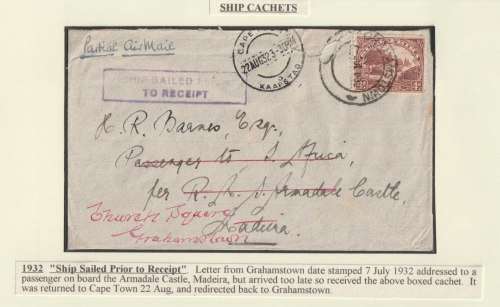 SHIP CACHETS
Partial Air Mail
CAPE
22 AUG 32
KAAPSTAD
SHIP SAILED
TO RECEIPT
H. R. Barnes, Esq.,
Passenger to S. Africa,
per R. M. S. Armadale Castle,
Madeira.
Church Square
Grahamstown
1932 "Ship Sailed Prior to Receipt" Letter from Grahamstown date stamped 7 July 1932 addressed to a
passenger on board the Armadale Castle, Madeira, but arrived too late so received the above boxed cachet. It
was returned to Cape Town 22 Aug, and redirected back to Grahamstown.